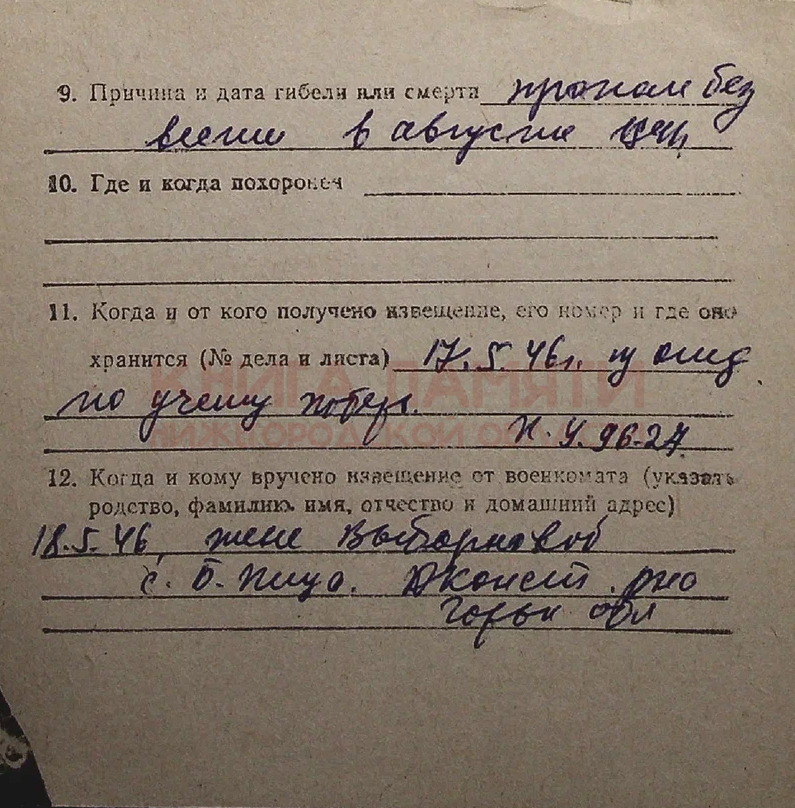 9. Причина и дата гибели или смерти пропал без
вести в августе
10. Где и когда похоронен
11. Когда и от кого получено извещение, его номер и где оно
хранится (№ дела и листа) 17.5.46г.
по учету потерь.
КНИГА ПАМЯТИ
НИЖЕГОРОДСКОЙ ОБЛАСТИ
12. Когда и кому вручено извещение от военкомата (указать
родство, фамилию, имя, отчество и домашний адрес)
18.5.46, жене
с. Б. Пица. Дконст. рно
Горьк обл